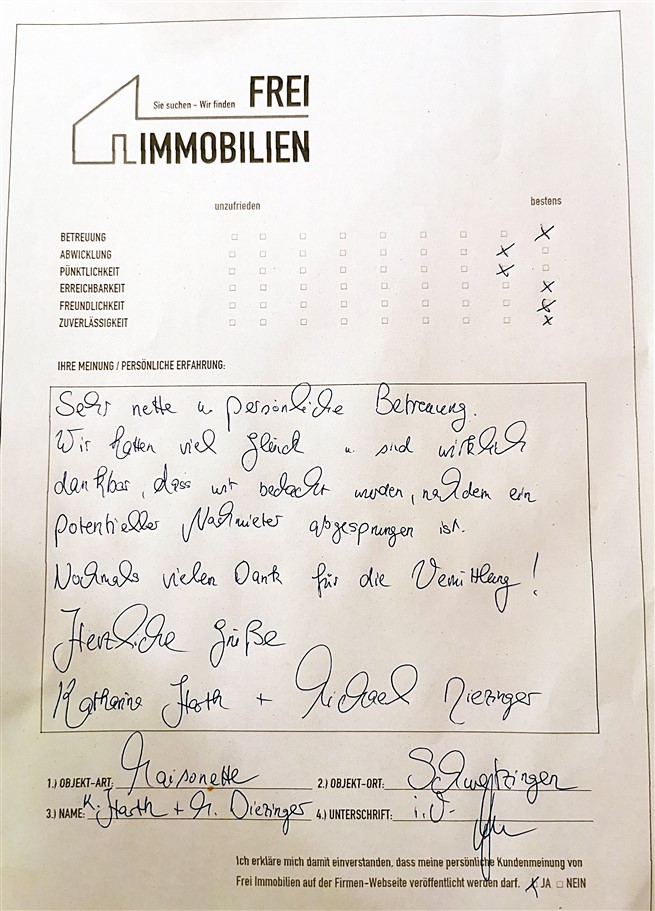 Sie suchen – Wir finden FREI
IMMOBILIEN
unzufrieden bestens
BETREUUNG
ABWICKLUNG
PÜNKTLICHKEIT
ERREICHBARKEIT
FREUNDLICHKEIT
ZUVERLÄSSIGKEIT
IHRE MEINUNG / PERSÖNLICHE ERFAHRUNG:
Sehr nette u persönliche Betreuung.
Wir hatten viel Glück u. sind wirklich
dankbar, dass wir bedacht wurden, nachdem ein
potentieller Nachmieter abgesprungen ist.
Nochmals vielen Dank für die Vermittlung!
Herzliche Grüße
Katharina Harth + Michael Diezinger
1.) OBJEKT-ART: Maisonette 2.) OBJEKT-ORT: Schwetzingen
3.) NAME: K. Harth + M. Diezinger 4.) UNTERSCHRIFT: i.V.
Ich erkläre mich damit einverstanden, dass meine persönliche Kundenmeinung von
Frei Immobilien auf der Firmen-Webseite veröffentlicht werden darf. JA NEIN